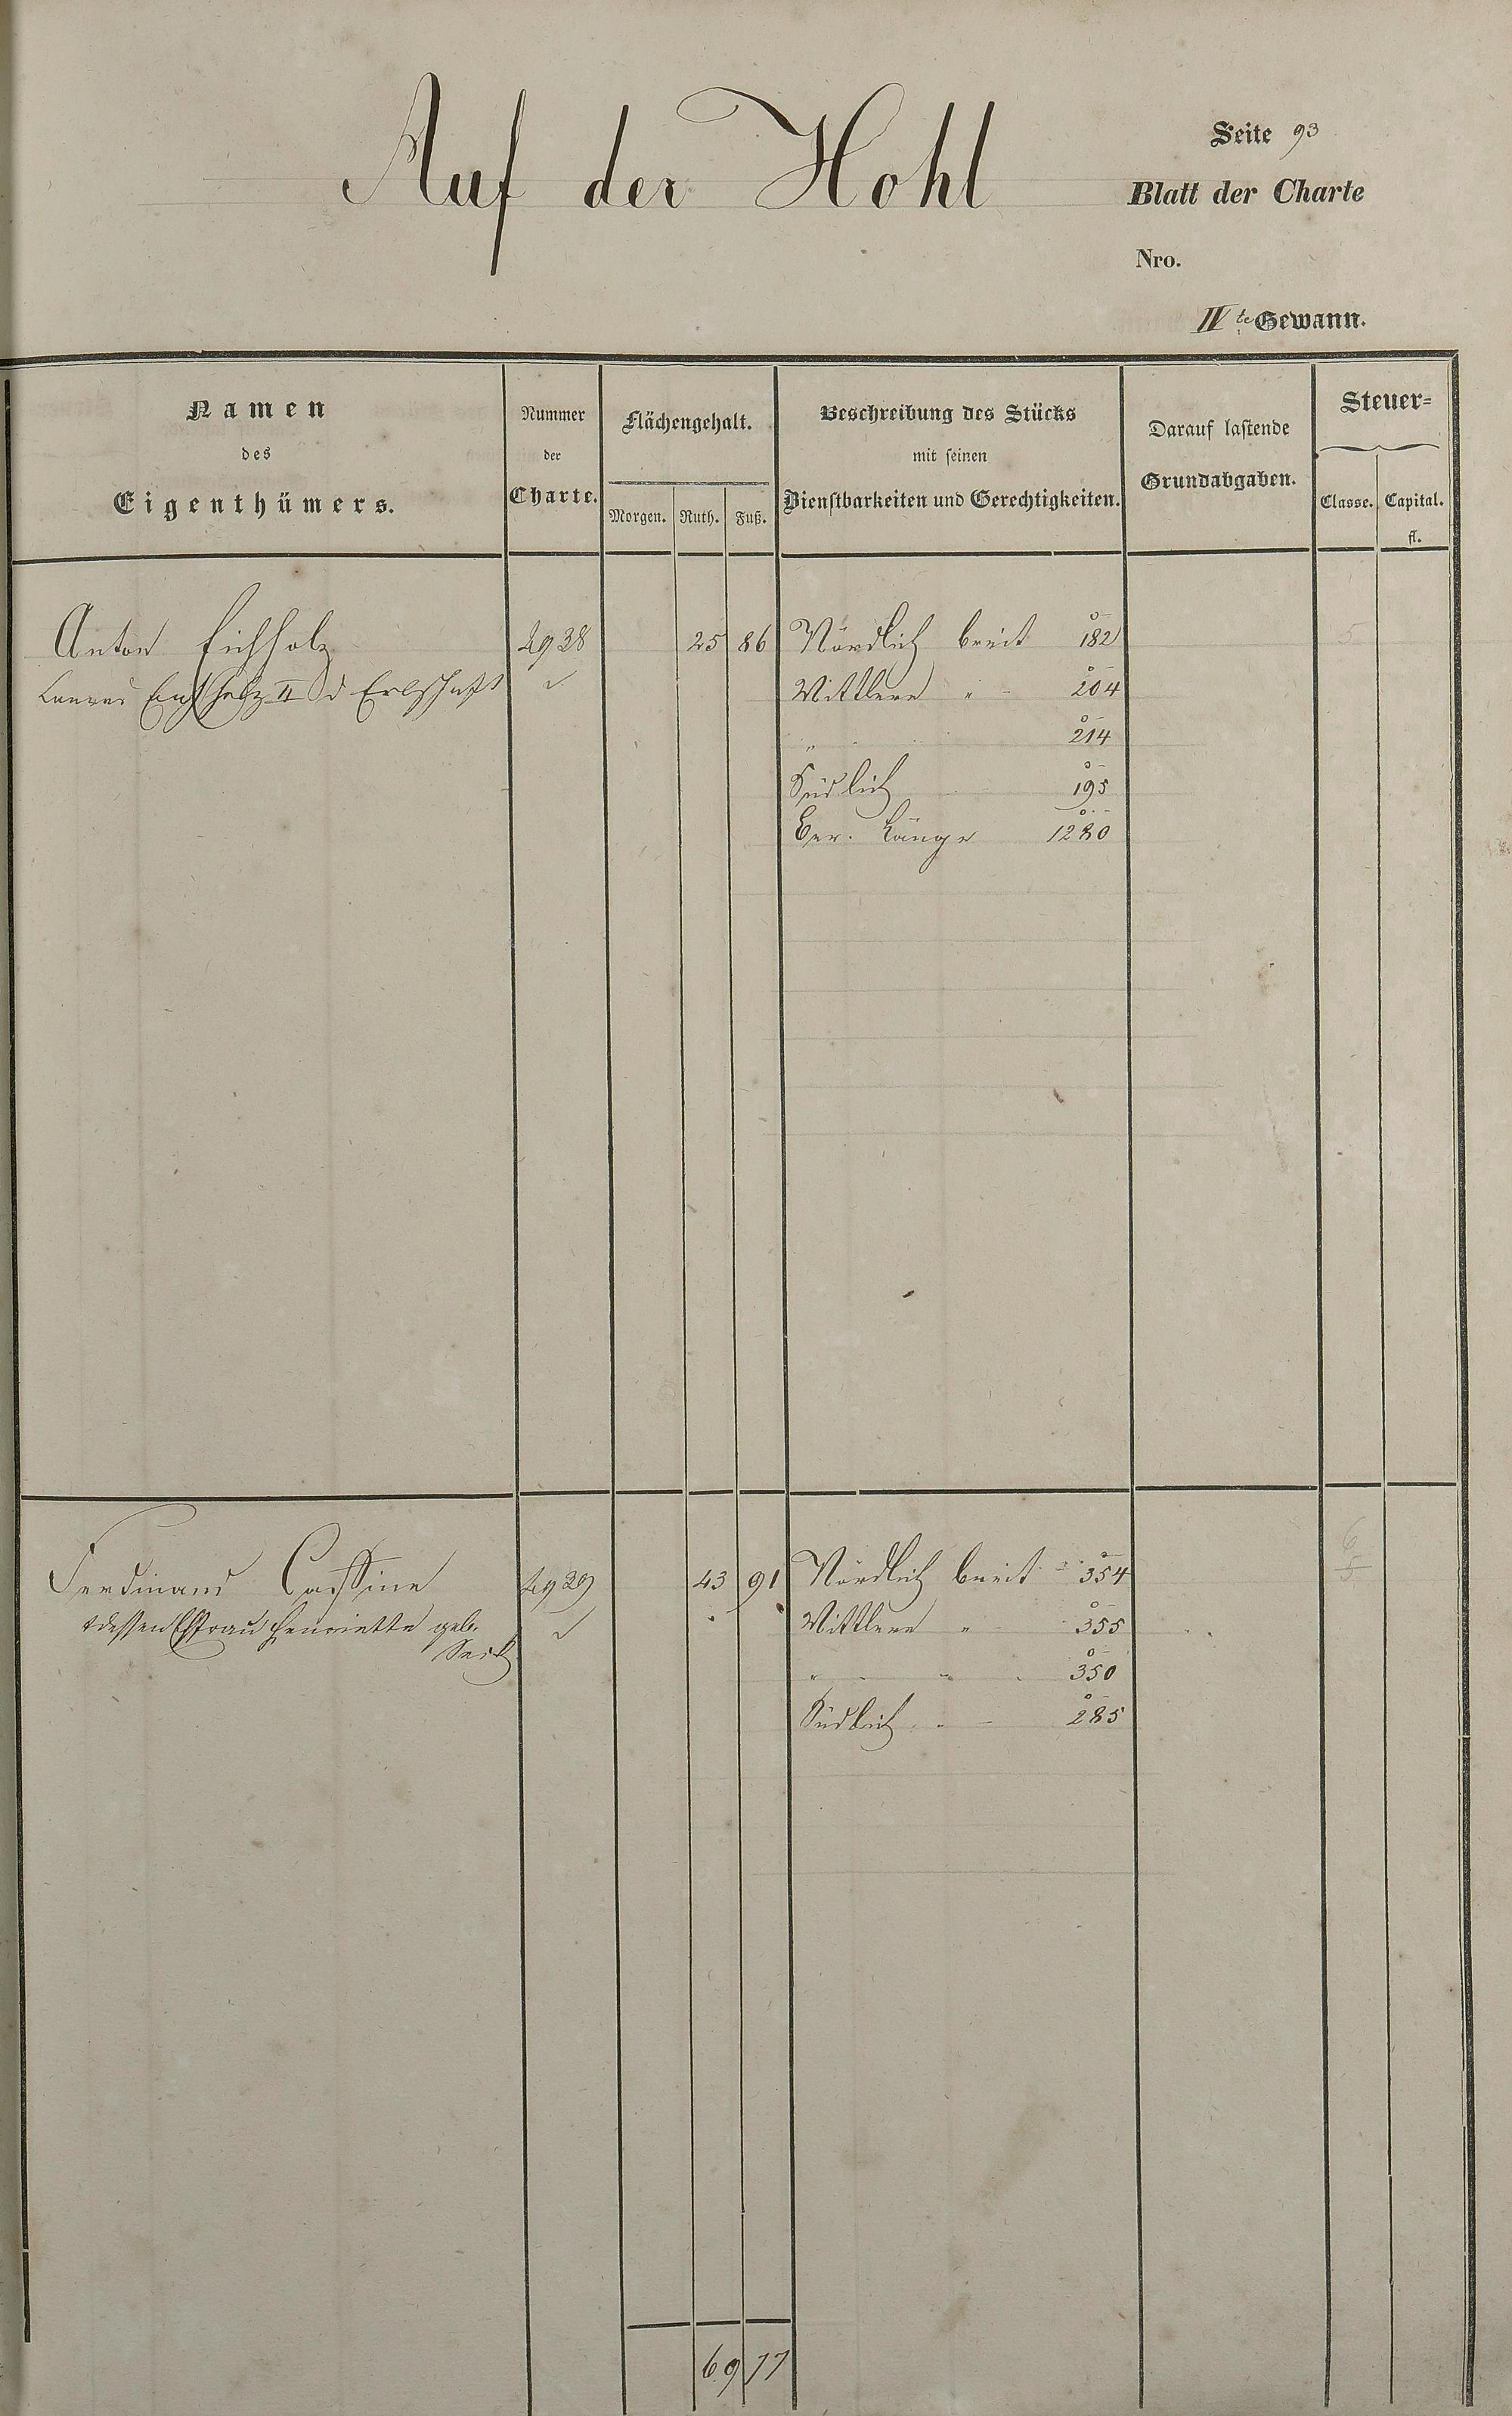 Auf der Hohl
Seite 93
Blatt der Charte
Nro.
IVte Gewann.
Namen
des
Eigenthümers.
Nummer
der
Charte.
Flächengehalt.
Morgen. Ruth. Fuß.
Beschreibung des Stücks
mit seinen
Dienstbarkeiten und Gerechtigkeiten.
Darauf lastende
Grundabgaben.
Steuer=
Classe. Capital.
fl.
Anton Eichholz 4938 25 86 Nördlich breit 182 5
Eichholz II Erbschaft Mittlere " 204
" 214
Südlich 195
Ber. Länge 1280
Ferdinand Cassine 4939 43 91 Nördlich breit 354 6/5
+ dessen Ehfrau Henriette geb. Mittlere " 355
Seitz
" " 350
Südlich " 285
69 77